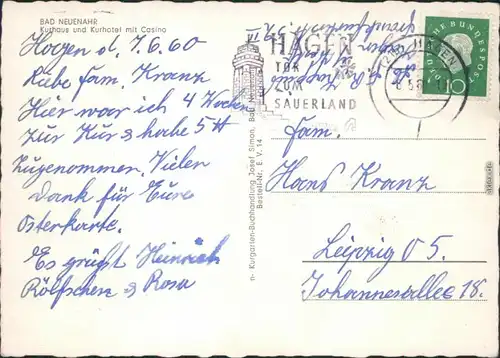 BAD NEUENAHR
Kurhaus und Kurhotel mit Casino
Hagen d. 7.6.60
Liebe Fam. Kranz
Hier war ich 4 Wochen
zur Kur & habe 5 ℔
zugenommen. Vielen
Dank für Eure
Osterkarte.
Es grüßt Heinrich
Rölfschen & Rosa
Kurgarten-Buchhandlung Josef Simon, Bad
Bestell-Nr. E. V. 54
HAGEN
TOR
ZUM
SAUERLAND
HAGEN
DEUTSCHE BUNDESPOST
10
Fam.
Hans Kranz
Leipzig O 5.
Johannesallee 18.